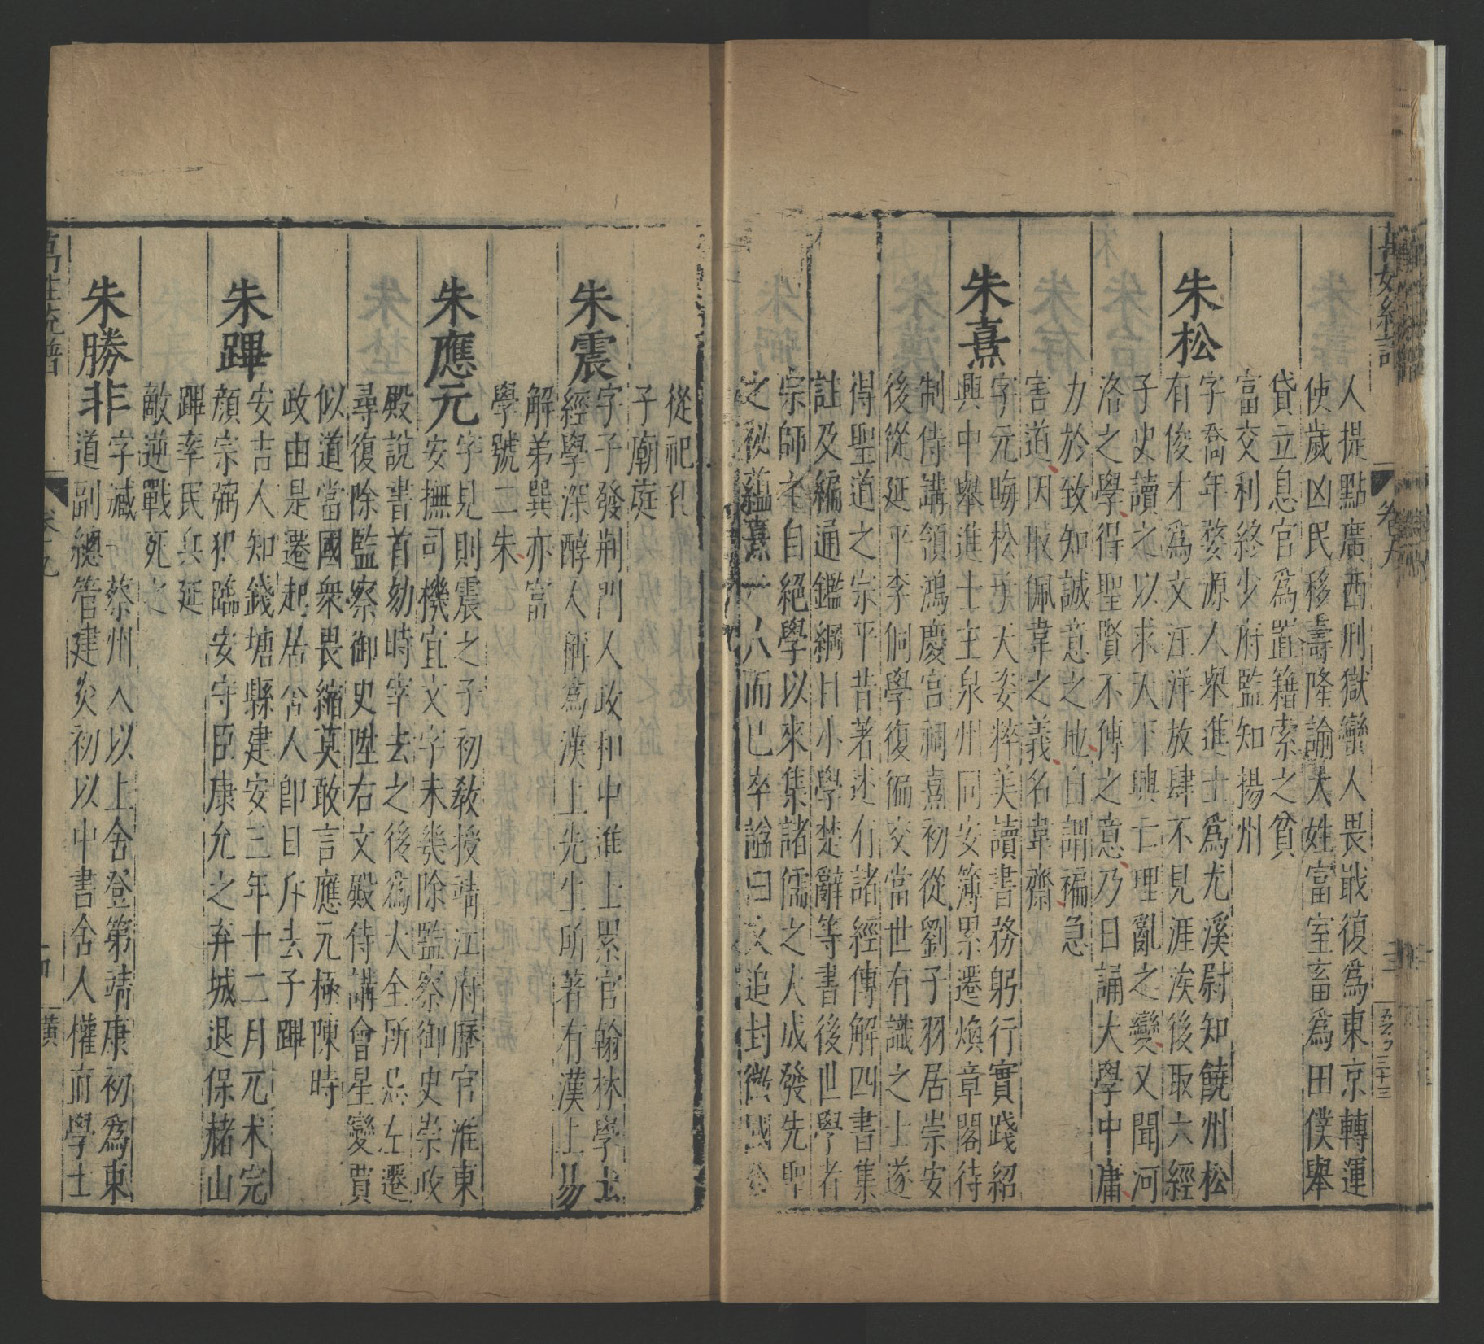 人提點廣西刑獄蠻人畏戢復爲東京轉運
使歲凶民移壽隆諭大姓富室畜爲田僕舉
貸立息官爲置籍索之貧
富交利終少府監知揚州
朱松
字喬年婺源人舉進士爲尤溪尉知饒州松
有俊才爲文汪洋放肆不見涯涘後取六經
子史讀之以求天下興亡理亂之變又聞河
洛之學得聖賢不傳之意乃日誦大學中庸
力於致知誠意之地自謂褊急
害道因取佩韋之義名韋齋
朱熹
字元晦松子天姿粹美讀書務躬行實踐紹
興中舉進士主泉州同安簿累遷煥章閣待
制侍講領鴻慶宮祠熹初從劉子羽居崇安
後從延平李侗學復徧交當世有識之士遂
得聖道之宗平昔著述有諸經傳解四書集
註及編通鑑綱目小學楚辭等書後世學者
宗師之自絕學以來集諸儒之大成發先聖
之祕蘊熹一人而已卒謚曰文追封徽國公
從祀孔
子廟庭
朱震
字子發荆門人政和中進士累官翰林學士
經學深醇人稱爲漢上先生所著有漢上易
解弟巽亦富
學號二朱
朱應元
字見則震之子初敎授靖江府歷官淮東
安撫司機宜文字未幾除監察御史崇政
殿說書首劾時宰去之後爲大全所忌左遷
尋復除監察御史陞右文殿侍講會星變賈
似道當國衆畏縮莫敢言應元極陳時
政由是遷起居舍人卽日斥去子蹕
朱蹕
安吉人知錢塘縣建安三年十二月元朮完
顏宗弼犯臨安守臣康允之弃城退保赭山
蹕率民兵延
敵逆戰死之
朱勝非
字藏一蔡州人以上舍登第靖康初爲東
道副總管建炎初以中書舍人權直學士